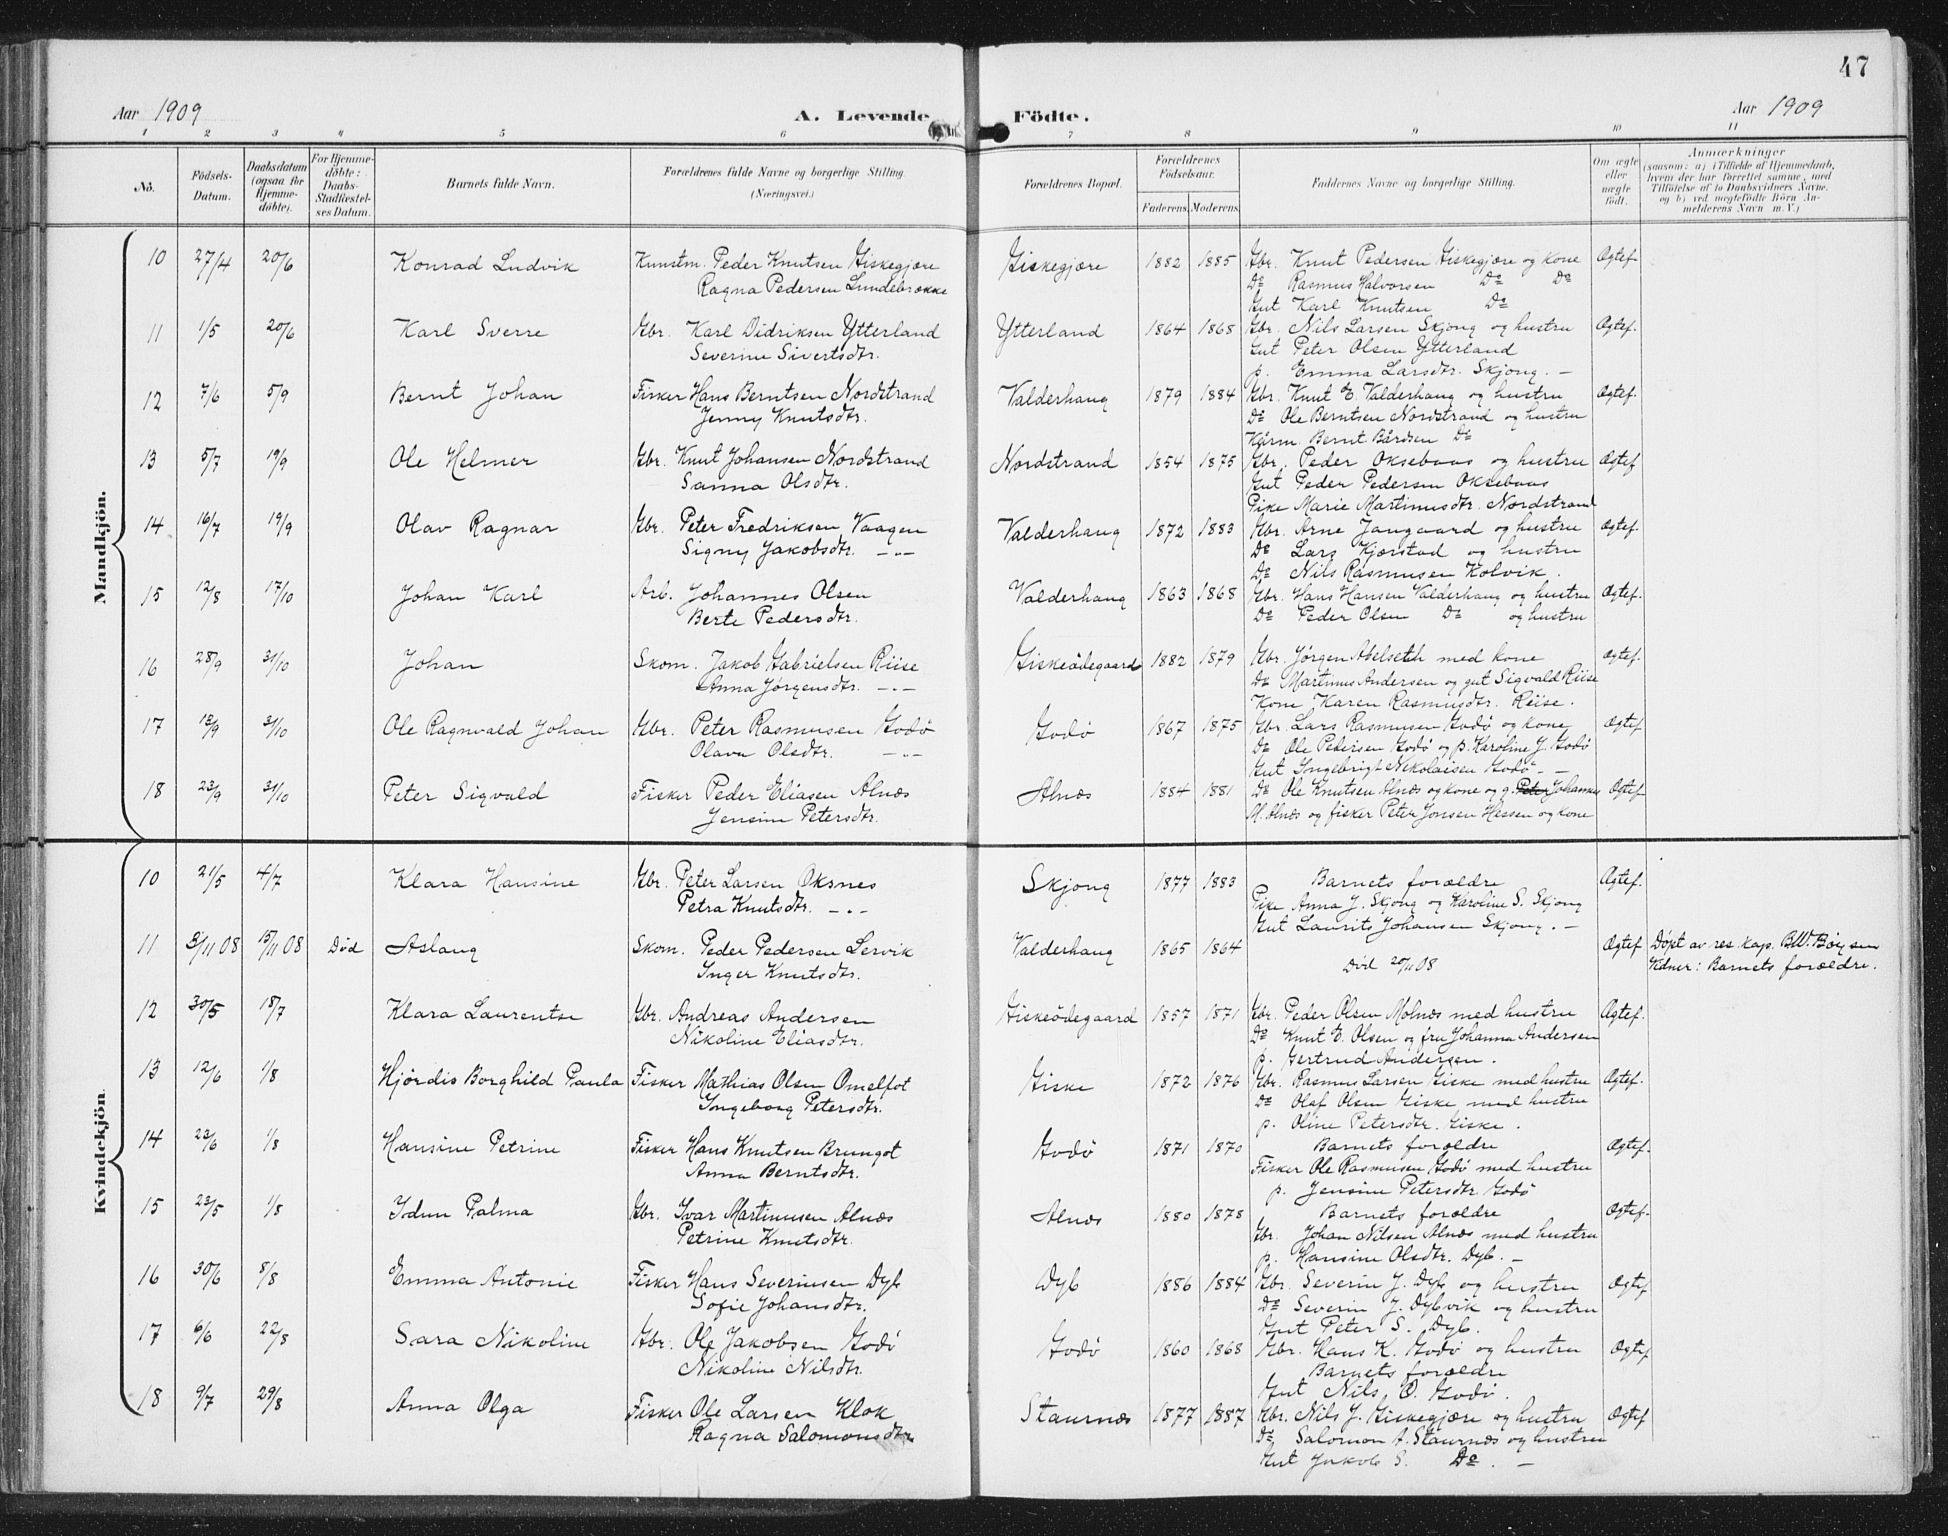 47
Aar 1909 A. Levende Födte. Aar 1909
1 2 3 4 5 6 7 8 9 10 11
No. Födsels-Datum. Daabsdatum (ogsaa for Hjemme-döbte). For Hjemme-döbte: Daabs-Stadfæstel-ses Datum. Barnets fulde Navn. Forældrenes fulde Navne og borgerlige Stilling. (Næringsvei.) Forældrenes Bopæl. Forældrenes Födselsaar. Faderens. Moderens. Faddernes Navne og borgerlige Stilling. Om ægte eller uægte födt. Anmærkninger (saasom: a) i Tilfælde af Hjemmedaab, hvem der har forrettet samme, med Tilföielse af to Daabsvidners Navne, og b) ved uegtefödte Börn An-melderens Navn m. V.)
Mandkjön.
10 27/4 20/6 Konrad Ludvik Kunstm. Peder Knutsen Giskegjære Giskegjære 1882 1885 Gbr. Knut Pedersen Giskegjære og kone Ægtef.
Ragna Pedersen Lundebrække Do Rasmus Halvorsen Do Do
Gut Karl Knutsen Do
11 1/5 20/6 Karl Sverre Gbr. Karl Didriksen Ytterland Ytterland 1864 1868 Gbr. Nils Larsen Skjong og hustru Ægtef.
Severine Sivertsdtr. Gut Peter Olsen Ytterland
p. Emma Larsdtr. Skjong. —
12 7/6 5/9 Bernt Johan Fisker Hans Berntsen Nordstrand Valderhaug 1879 1884 Gbr. Knut E. Valderhaug og hustru Ægtef.
Jenny Knutsdtr. Do Ole Berntsen Nordstrand og hustru
Kårm. Bernt Bårdsen Do
13 5/7 19/9 Ole Helmer Gbr. Knut Johansen Nordstrand Nordstrand 1854 1875 Gbr. Peder Oksebaas og hustru Ægtef
Sanna Olsdtr. Gut Peder Pedersen Oksebaas
Pike Marie Martinusdtr. Nordstrand
14 16/7 19/9 Olav Ragnar Gbr. Peter Fredriksen Vaagen Valderhaug 1872 1883 Gbr. Arne Jangaard og hustru Ægtef.
Signy Jakobsdtr. —"— Do Lars Kjærstad og hustru
Do Nils Rasmusen Kolvik.
15 12/8 17/10 Johan Karl Arb. Johannes Olsen Valderhaug 1863 1868 Gbr. Hans Hansen Valderhaug og hustru Ægtef.
Berte Pedersdtr. Do Peder Olsen Do og hustru
16 28/9 31/10 Johan Skom. Jakob Gabrielsen Riise Giskeödegaard 1882 1879 Gbr. Jørgen Abelseth med kone Ægtef.
Anna Jørgensdtr. —"— Do Martinus Andersen og gut Sigvald Riise
Kone Karen Rasmusdtr. Riise.
17 13/9 31/10 Ole Ragnvald Johan Gbr. Peter Rasmusen Godø Godø 1867 1875 Gbr. Lars Rasmusen Godø og kone Ægtef
Olava Olsdtr. —"— Do Ole Petersen Godø og p. Karoline J. Godø
Gut Ingebrigt Nikolaisen Godø — —
18 23/9 31/10 Peter Sigvald Fisker Peder Eliasen Alnæs Alnæs 1884 1881 Do Ole Knutsen Alnæs og kone og g. Peter Johannes Ægtef
Jensine Petersdtr. M. Alnæs og fisker Peter Jonsen Hessen og kone
Kvindekjön.
10 21/5 4/7 Klara Hansine Gbr. Peter Larsen Oksnes Skjong 1877 1883 Barnets forældre Ægtef.
Petra Knutsdtr. —"— Pike Anna J. Skjong og Karoline S. Skjong
Gut Laurits Johansen Skjong. —
11 3/11 08 15/11 08 Død Aslaug Skom. Peder Pedersen Lervik Valderhaug 1865 1864 Ægtef Døpt av res. kap. B.W. Böysen
Inger Knutsdtr. Død 20/11 08 Vidner: Barnets forældre.
12 30/5 18/7 Klara Laurentse Gbr. Andreas Andersen Giskeödegaard 1857 1871 Gbr. Peder Olsen Molnæs med hustru Ægtef.
Nikoline Eliasdtr. Do Knut E. Olsen og fru Johanna Andersen
p. Gertrud Andersen.
13 12/6 1/8 Hjørdis Borghild Paula Fisker Mathias Olsen Omelfot Giske 1872 1876 Gbr. Rasmus Larsen Giske med hustru Ægtef.
Ingeborg Petersdtr. Do Olaf Olsen Giske med hustru
p. Oline Petersdtr. Giske.
14 23/6 1/8 Hansine Petrine Fisker Hans Knutsen Brungot Godø 1871 1870 Barnets forældre Ægtef.
Anna Berntsdtr. Fisker Ole Rasmusen Godø med hustru
p. Jensine Petersdtr. Godø
15 23/5 1/8 Idun Palma Gbr. Ivar Martinusen Alnæs Alnæs 1880 1878 Barnets forældre Ægtef.
Petrine Knutsdtr. Gbr. Johan Nilsen Alnæs med hustru
p. Hansine Olsdtr. Dyb. —
16 30/6 8/8 Emma Antonie Fisker Hans Severinsen Dyb Dyb 1886 1884 Gbr. Severin J. Dyb og hustru Ægtef
Sofie Johansdtr. Do Severin J. Dybvik og hustru
Gut Peter S. Dyb.
17 6/6 22/8 Sara Nikoline Gbr. Ole Jakobsen Godø Godø 1860 1868 Gbr. Hans K. Godø og hustru Ægtef
Nikoline Nilsdtr. Barnets forældre
Gut Nils O. Godø.
18 9/7 29/8 Anna Olga Fisker Ole Larsen Klok Staurnæs 1877 1887 Gbr. Nils J. Giskegjære og hustru Ægtef
Ragna Salomonsdtr. Do Salomon A. Staurnæs og hustru
Gut Jakob S. Do. —